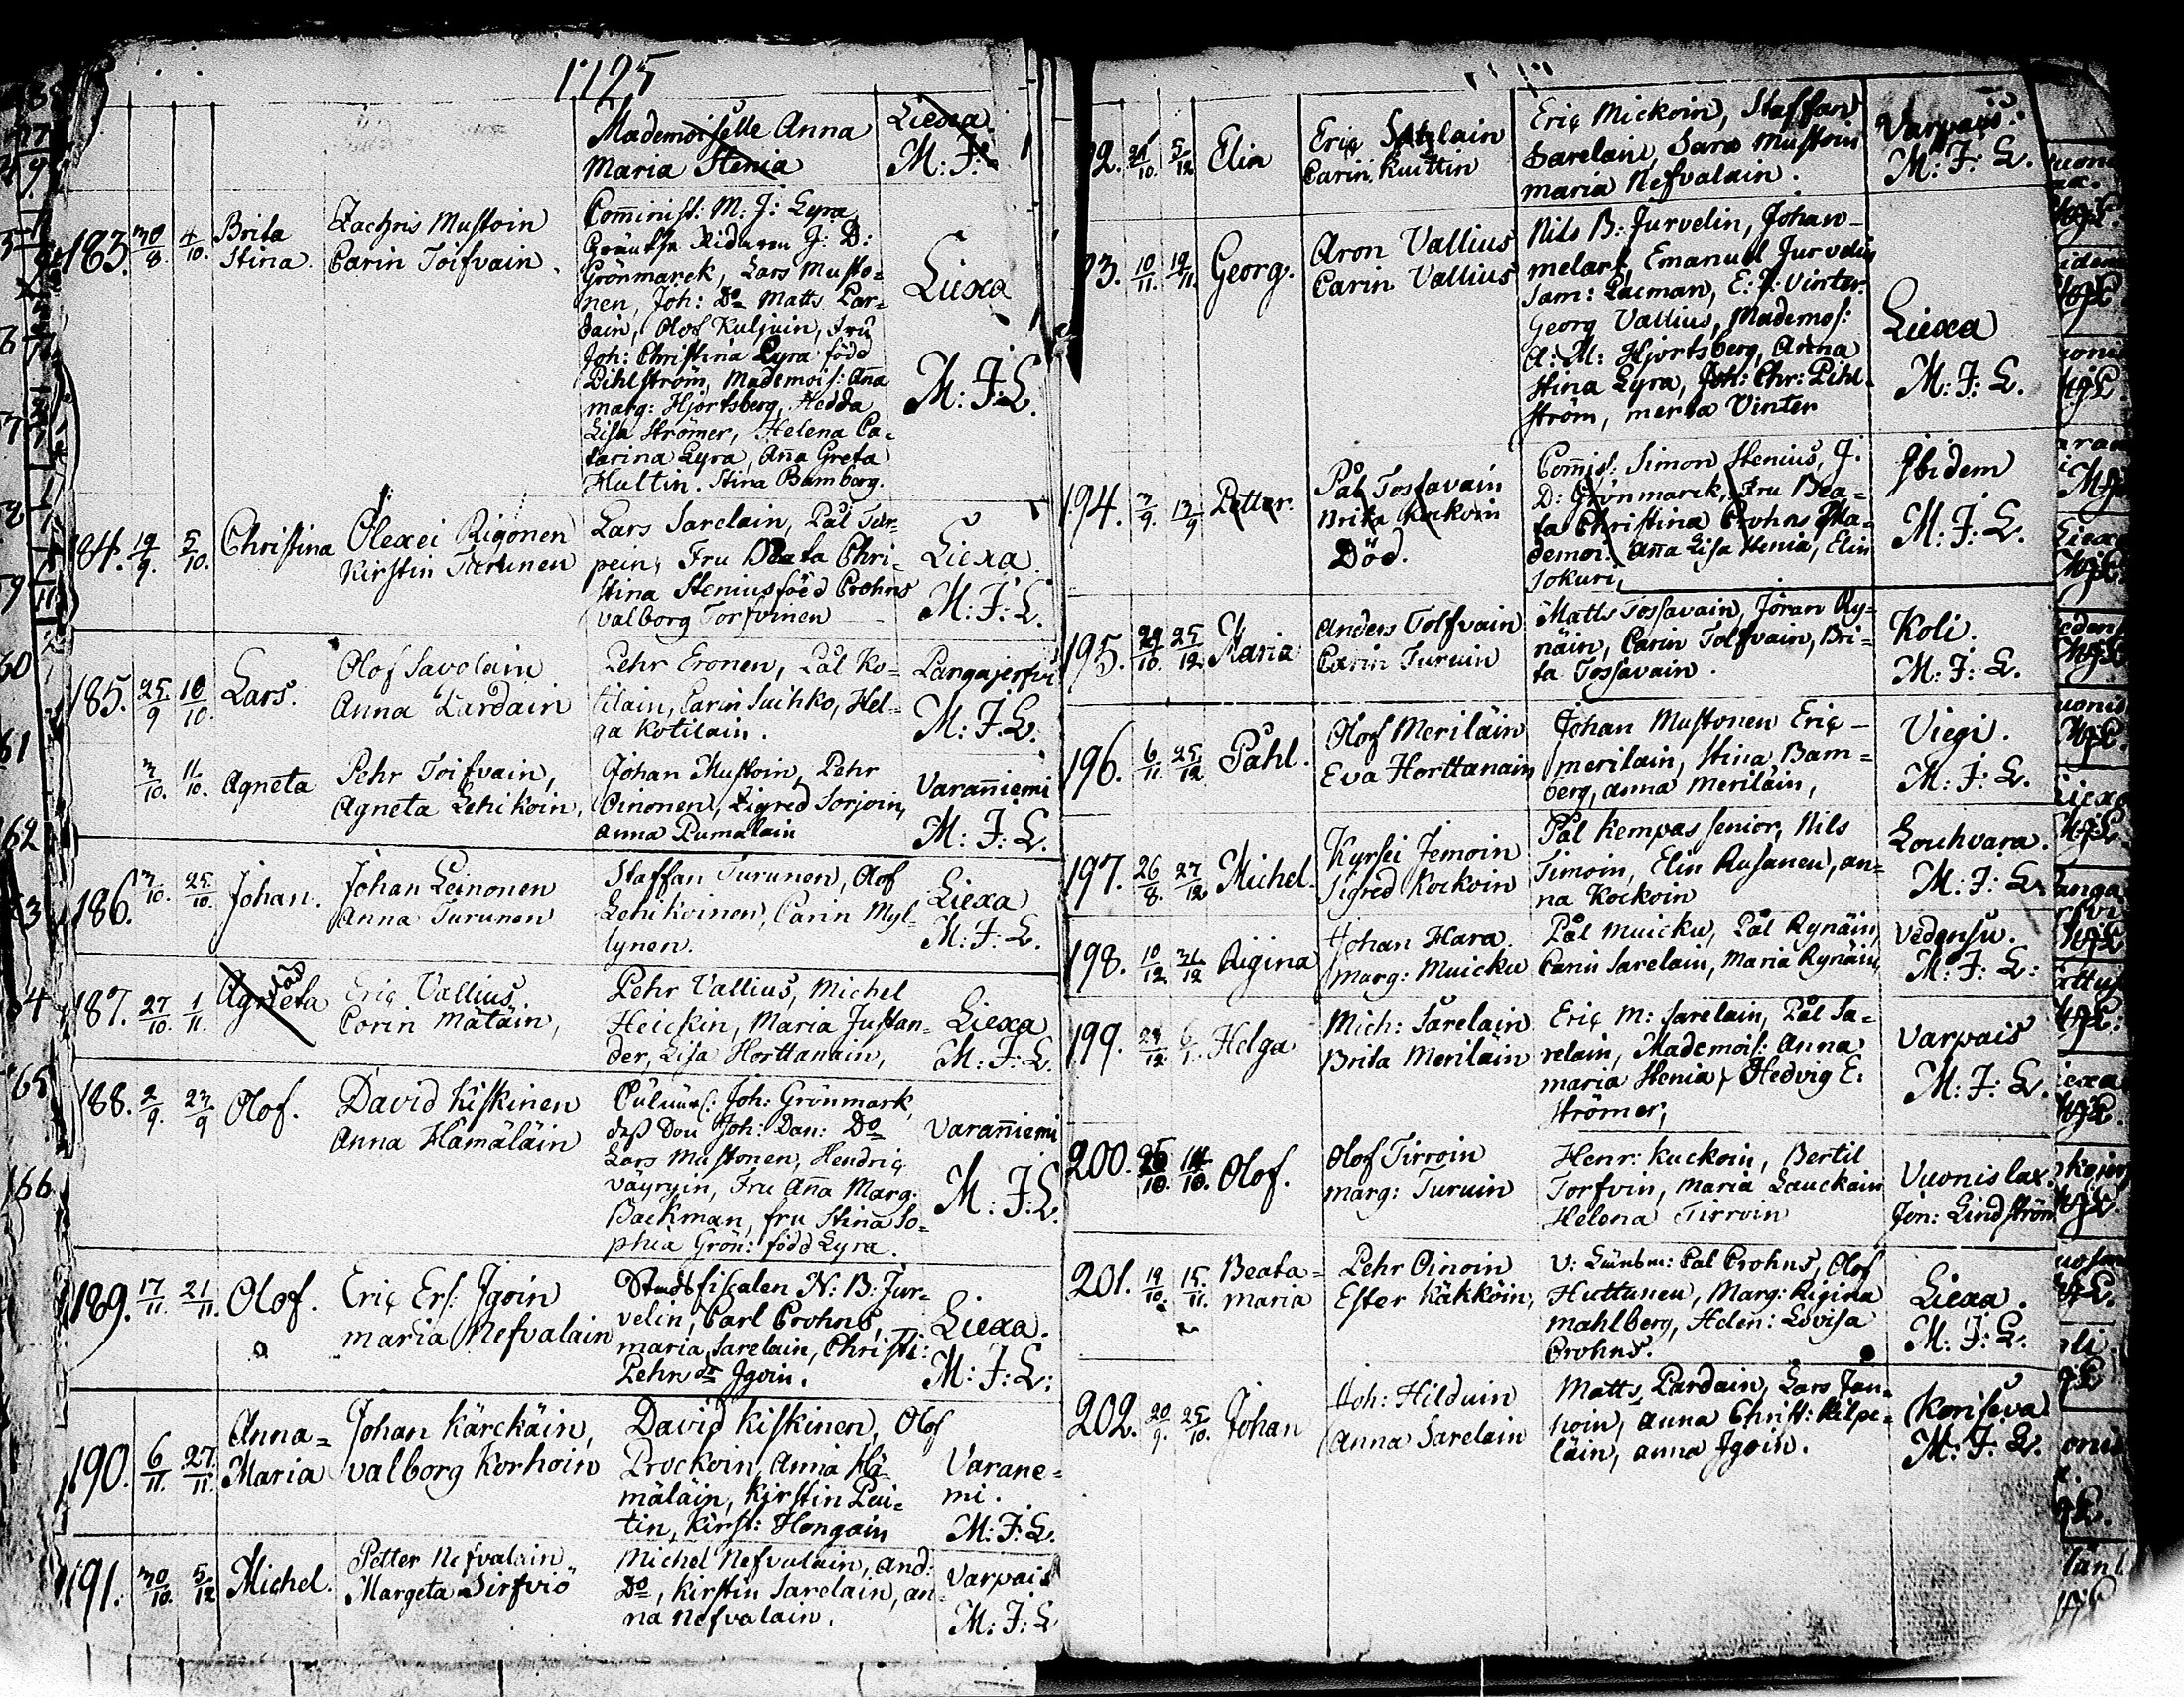 1725
Mademoiselle Anna
Maria Stenia
Liexa
M: J:
183. 30/8 4/10 Brita
Stina.
Zachris Mustoin
Carin Toifvain.
Com̄inist: M: J: Lyra
J: D:
Grönmarck, Lars Musto=
nen, Joh: Do Matts Par=
dain, Olof Kuljuin, Fru
Joh: Christina Lyra född
Pihlström, Mademois: An̄a
marg: Hjortsberg, Hedda
Lisa Strömer, Helena Ca=
tarina Lyra, An̄a Greta
Hultin. Stina Bamberg.
Liexa
M: J: L.
184. 19/9. 5/10. Christina
Olexei Rigonen
Kirstin Turunen
Lars Sarelain, Pål Tur=
pein, Fru Beata Chri=
stina Stenius född Crohns
valborg Torfvinen
Liexa.
M: J: L.
185. 25/9 10/10. Lars.
Olof Savolain
Anna Pardain
Pehr Eronen, Pål Ko=
tilain, Carin Suihko, Hel=
ga Kotilain.
Pangajerfvi
M: J: L.
3/10. 11/10. Agneta
Pehr Toifvain,
Agneta Lehikoin,
Johan Mustoin, Pehr
Oinonen, Sigred Sorjoin,
Anna Pumalain
Varan̄iemi
M: J: L.
186. 3/10. 25/10. Johan.
Johan Leinonen
Anna Turunen
Staffan Turunen, Olof
Lehikoinen, Carin Myl=
lynen.
Liexa
M: J: L.
187. 27/10. 1/11. Agneta
död
Eric Vallius.
Corin Mätäin,
Pehr Vallius, Michel
Heickin, Maria Justan=
der, Lisa Horttanain,
Liexa
M: J: L.
188. 2/9. 23/9 Olof.
David Kiskinen
Anna Hämäläin
Joh: Grönmark,
Joh: Dan: Do
Lars Mustonen, Hendric
väyryin, Fru An̄a Marg.
Backman, fru Stina So=
phia Grön: född Lyra.
Varan̄iemi
M: J: L.
189. 17/11. 21/11. Olof.
Eric Ers: Jgoin
maria Nefvalain
Stadsfiscalen N: B: Jur=
velin, Carl Crohns,
maria Sarelain, Christi:
Pehrsdr Jgoin.
Liexa.
M: J: L:
190. 6/11. 27/11. Anna=
Maria
Johan Kärckäin,
valborg Korhoin
David Kiskinen, Olof
Prockoin, Anna Hä=
mäläin, Kirstin Pui=
tin, Kirst: Hongain
Varane=
mi.
M: J: L.
191. 30/10. 5/12 Michel.
Petter Nefvalain
Margeta Sirfviö
Michel Nefvalain, And:
Do, Kirstin Sarelain, an=
na Nefvalain.
Varpais
M: J: L
92. 21/10. 5/12 Elin
Eric Sarelain
Carin Kuittin
Eric Mickoin, Staffan
Sarelain, Sara Mustoin
maria Nefvalain.
Varpais:
M: J: L.
93. 10/11. 19/11. Georg.
Aron Vallius
Carin Vallius
Nils B: Jurvelin, Johan
melart, Emanuel Jurvelin
Sam: Pacman, E: J: Vinter
Georg Vallius, Mademos:
A: M: Hjortsberg, Anna
Stina Lyra, Joh: Chr: Pihl=
ström, merta Vinter
Liexa
M: J: L.
194. 3/9. 13/9 Petter.
Pål Tossavain
Brita Kockoin
Död.
Com̄is: Simon Stenius, J.
D: Grönmarck, Fru Bea=
ta Christina Crohns, Ma=
demoi: An̄a Lisa Stenia, Elin
Sokuri,
Jbidem
M: J: L.
195. 29/10. 25/12. Maria
Anders Tolfvain
Carin Turuin
Matts Tossavain, Jöran Ry=
näin, Carin Tolfvain, Bri=
ta Tossavain.
Koli.
M: J: L.
196. 6/11. 25/12 Påhl.
Olof Meriläin
Eva Horttanain
Johan Mustonen Eric
merilain, Stina Bam=
berg, anna Meriläin,
Viegi.
M: J: L.
197. 26/8. 27/12 Michel.
Kyrsei Jemoin
Sigred Kockoin
Pål Kempas senior, Nils
Timoin, Elin Rusanen, an=
na Kockoin
Louhvara.
M: J: L.
198. 10/12 31/12 Rigina
Johan Hara.
marg: Muicku
Pål Muicku, Pål Rynäin,
Carin Sarelain, Maria Rynäin,
Vedensu.
M: J: L:
199. 24/12. 6/1. Helga
Mich: Sarelain
Brita Meriläin
Eric M: Sarelain, Pål Sa=
relain, Mademois: Anna
maria Stenia, Hedvig E:
Strömer,
Varpais
M: J: L.
200. 14/10. Olof.
Olof Tirroin
marg: Turuin
Henr: Kuckoin, Bertil
Torfvin, maria Lauckain
Helena Tirroin
Vuonislax.
Jon: Lindström
201. 19/10. 15/11. Beata=
maria
Pehr Oinoin
Ester Käkköin,
Pål Crohns, Olof
Huttunen, Marg: Rigina
mahlberg, Helen: Lovisa
Crohns.
Liexa.
M: J: L.
202. 20/9. 25/10. Johan
Joh: Hilduin
Anna Sarelain
Matts Pardain, Lars Jan=
hoin, Anna Christ: Kilpe=
läin, anna Jgoin.
Koriseva
M: J: L.